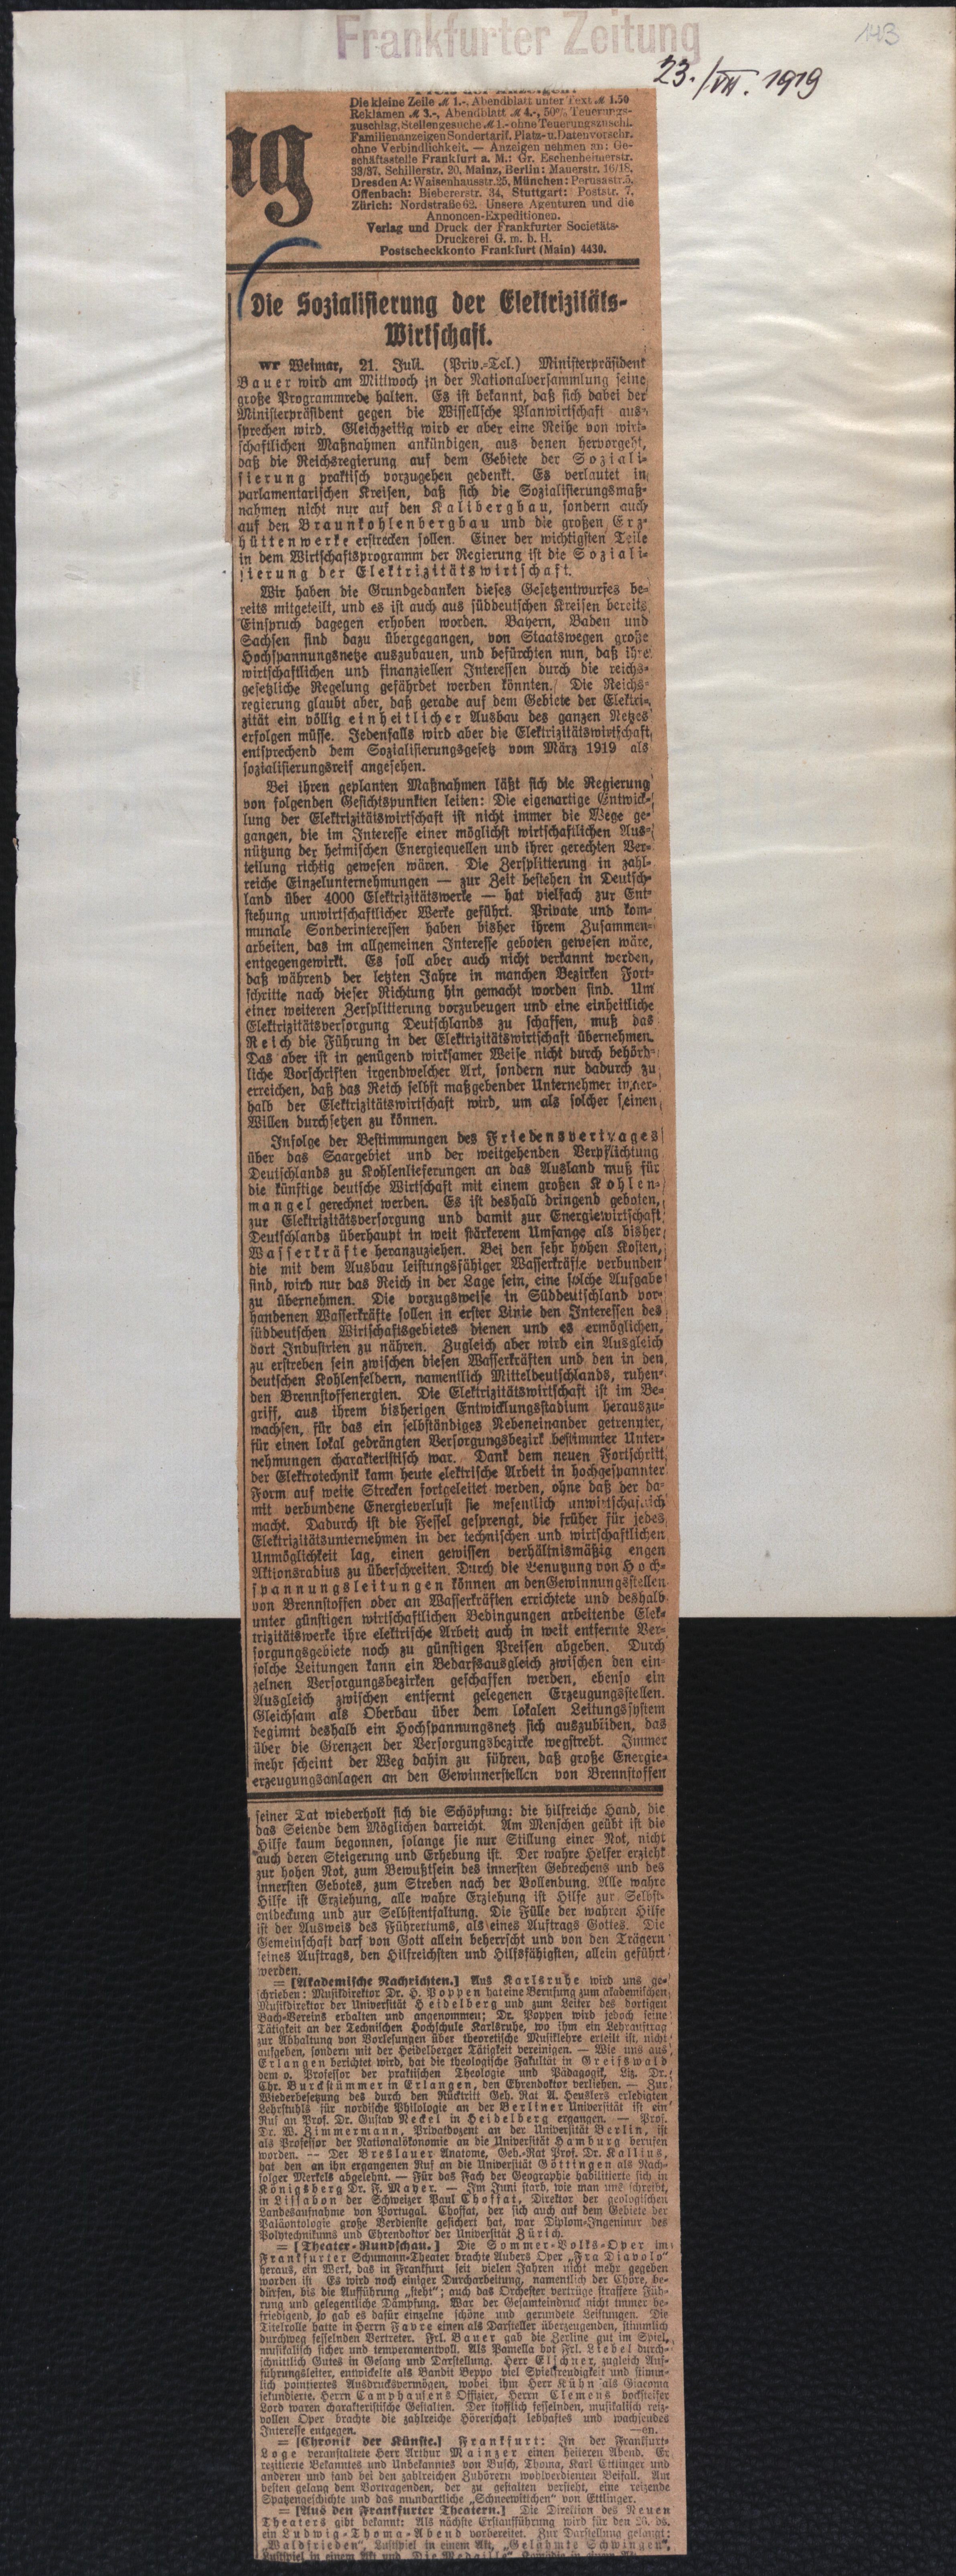 Frankfurter Zeitung
143
23./VII. 1919
Die kleine Zeile ℳ 1.-. Abendblatt unter Text ℳ 1.50
Reklamen ℳ 3.-, Abendblatt ℳ 4.-, 50% Teuerungs-
zuschlag. Stellengesuche ℳ 1.- ohne Teuerungszuschl.
Familienanzeigen Sondertarif. Platz- u. Datenvorschr.
ohne Verbindlichkeit. — Anzeigen nehmen an: Ge-
schäftsstelle Frankfurt a. M.: Gr. Eschenheimerstr.
33/37, Schillerstr. 20, Mainz, Berlin: Mauerstr. 16/18,
Dresden A: Waisenhausstr. 25, München: Perusastr. 5,
Offenbach: Biebererstr. 34, Stuttgart: Poststr. 7,
Zürich: Nordstraße 62. Unsere Agenturen und die
Annoncen-Expeditionen.
Verlag und Druck der Frankfurter Societäts-
Druckerei G. m. b. H.
Postscheckkonto Frankfurt (Main) 4430.
ng
Die Sozialisierung der Elektrizitäts-
Wirtschaft.
wr Weimar, 21. Juli. (Priv.-Tel.) Ministerpräsident
Bauer wird am Mittwoch in der Nationalversammlung seine
große Programmrede halten. Es ist bekannt, daß sich dabei der
Ministerpräsident gegen die Wissellsche Planwirtschaft aus-
sprechen wird. Gleichzeitig wird er aber eine Reihe von wirt-
schaftlichen Maßnahmen ankündigen, aus denen hervorgeht,
daß die Reichsregierung auf dem Gebiete der Soziali-
sierung praktisch vorzugehen gedenkt. Es verlautet in
parlamentarischen Kreisen, daß sich die Sozialisierungsmaß-
nahmen nicht nur auf den Kalibergbau, sondern auch
auf den Braunkohlenbergbau und die großen Erz-
hüttenwerke erstrecken sollen. Einer der wichtigsten Teile
in dem Wirtschaftsprogramm der Regierung ist die Soziali-
sierung der Elektrizitätswirtschaft.
Wir haben die Grundgedanken dieses Gesetzentwurfes be-
reits mitgeteilt, und es ist auch aus süddeutschen Kreisen bereits
Einspruch dagegen erhoben worden. Bayern, Baden und
Sachsen sind dazu übergegangen, von Staatswegen große
Hochspannungsnetze auszubauen, und befürchten nun, daß ihre
wirtschaftlichen und finanziellen Interessen durch die reichs-
gesetzliche Regelung gefährdet werden könnten. Die Reichs-
regierung glaubt aber, daß gerade auf dem Gebiete der Elektri-
zität ein völlig einheitlicher Ausbau des ganzen Netzes
erfolgen müsse. Jedenfalls wird aber die Elektrizitätswirtschaft
entsprechend dem Sozialisierungsgesetz vom März 1919 als
sozialisierungsreif angesehen.
Bei ihren geplanten Maßnahmen läßt sich die Regierung
von folgenden Gesichtspunkten leiten: Die eigenartige Entwick-
lung der Elektrizitätswirtschaft ist nicht immer die Wege ge-
gangen, die im Interesse einer möglichst wirtschaftlichen Aus-
nützung der heimischen Energiequellen und ihrer gerechten Ver-
teilung richtig gewesen wären. Die Zersplitterung in zahl-
reiche Einzelunternehmungen — zur Zeit bestehen in Deutsch-
land über 4000 Elektrizitätswerke — hat vielfach zur Ent-
stehung unwirtschaftlicher Werke geführt. Private und kom-
munale Sonderinteressen haben bisher ihrem Zusammen-
arbeiten, das im allgemeinen Interesse geboten gewesen wäre,
entgegengewirkt. Es soll aber auch nicht verkannt werden,
daß während der letzten Jahre in manchen Bezirken Fort-
schritte nach dieser Richtung hin gemacht worden sind. Um
einer weiteren Zersplitterung vorzubeugen und eine einheitliche
Elektrizitätsversorgung Deutschlands zu schaffen, muß das
Reich die Führung in der Elektrizitätswirtschaft übernehmen.
Das aber ist in genügend wirksamer Weise nicht durch behörd-
liche Vorschriften irgendwelcher Art, sondern nur dadurch zu
erreichen, daß das Reich selbst maßgebender Unternehmer inner-
halb der Elektrizitätswirtschaft wird, um als solcher seinen
Willen durchsetzen zu können.
Infolge der Bestimmungen des Friedensvertrages
über das Saargebiet und der weitgehenden Verpflichtung
Deutschlands zu Kohlenlieferungen an das Ausland muß für
die künftige deutsche Wirtschaft mit einem großen Kohlen-
mangel gerechnet werden. Es ist deshalb dringend geboten,
zur Elektrizitätsversorgung und damit zur Energiewirtschaft
Deutschlands überhaupt in weit stärkerem Umfange als bisher
Wasserkräfte heranzuziehen. Bei den sehr hohen Kosten,
die mit dem Ausbau leistungsfähiger Wasserkräfte verbunden
sind, wird nur das Reich in der Lage sein, eine solche Aufgabe
zu übernehmen. Die vorzugsweise in Süddeutschland vor-
handenen Wasserkräfte sollen in erster Linie den Interessen des
süddeutschen Wirtschaftsgebietes dienen und es ermöglichen,
dort Industrien zu nähren. Zugleich aber wird ein Ausgleich
zu erstreben sein zwischen diesen Wasserkräften und den in den
deutschen Kohlenfeldern, namentlich Mitteldeutschlands, ruhen-
den Brennstoffenergien. Die Elektrizitätswirtschaft ist im Be-
griff, aus ihrem bisherigen Entwicklungsstadium herauszu-
wachsen, für das ein selbständiges Nebeneinander getrennter,
für einen lokal gedrängten Versorgungsbezirk bestimmter Unter-
nehmungen charakteristisch war. Dank dem neuen Fortschritt
der Elektrotechnik kann heute elektrische Arbeit in hochgespannter
Form auf weite Strecken fortgeleitet werden, ohne daß der da-
mit verbundene Energieverlust sie wesentlich unwirtschaftlich
macht. Dadurch ist die Fessel gesprengt, die früher für jedes
Elektrizitätsunternehmen in der technischen und wirtschaftlichen
Unmöglichkeit lag, einen gewissen verhältnismäßig engen
Aktionsradius zu überschreiten. Durch die Benutzung von Hoch-
spannungsleitungen können an den Gewinnungsstellen
von Brennstoffen oder an Wasserkräften errichtete und deshalb
unter günstigen wirtschaftlichen Bedingungen arbeitende Elek-
trizitätswerke ihre elektrische Arbeit auch in weit entfernte Ver-
sorgungsgebiete noch zu günstigen Preisen abgeben. Durch
solche Leitungen kann ein Bedarfsausgleich zwischen den ein-
zelnen Versorgungsbezirken geschaffen werden, ebenso ein
Ausgleich zwischen entfernt gelegenen Erzeugungsstellen.
Gleichsam als Oberbau über dem lokalen Leitungssystem
beginnt deshalb ein Hochspannungsnetz sich auszubilden, das
über die Grenzen der Versorgungsbezirke wegstrebt. Immer
mehr scheint der Weg dahin zu führen, daß große Energie-
erzeugungsanlagen an den Gewinnerstellen von Brennstoffen
seiner Tat wiederholt sich die Schöpfung: die hilfreiche Hand, die
das Seiende dem Möglichen darreicht. Am Menschen geübt ist die
Hilfe kaum begonnen, solange sie nur Stillung einer Not, nicht
auch deren Steigerung und Erhebung ist. Der wahre Helfer erzieht
zur hohen Not, zum Bewußtsein des innersten Gebrechens und des
innersten Gebotes, zum Streben nach der Vollendung. Alle wahre
Hilfe ist Erziehung, alle wahre Erziehung ist Hilfe zur Selbst-
entdeckung und zur Selbstentfaltung. Die Fülle der wahren Hilfe
ist der Ausweis des Führertums, als eines Auftrags Gottes. Die
Gemeinschaft darf von Gott allein beherrscht und von den Trägern
seines Auftrags, den Hilfreichsten und Hilfsfähigsten, allein geführt
werden.
= [Akademische Nachrichten.] Aus Karlsruhe wird uns ge-
schrieben: Musikdirektor Dr. H. Poppen hat eine Berufung zum akademischen
Musikdirektor der Universität Heidelberg und zum Leiter des dortigen
Bach-Vereins erhalten und angenommen; Dr. Poppen wird jedoch seine
Tätigkeit an der Technischen Hochschule Karlsruhe, wo ihm ein Lehrauftrag
zur Abhaltung von Vorlesungen über theoretische Musiklehre erteilt ist, nicht
aufgeben, sondern mit der Heidelberger Tätigkeit vereinigen. — Wie uns aus
Erlangen berichtet wird, hat die theologische Fakultät in Greifswald
dem o. Professor der praktischen Theologie und Pädagogik, Liz. Dr.
Chr. Burckstümmer in Erlangen, den Ehrendoktor verliehen. — Zur
Wiederbesetzung des durch den Rücktritt Geh. Rat A. Heuslers erledigten
Lehrstuhls für nordische Philologie an der Berliner Universität ist ein
Ruf an Prof. Dr. Gustav Neckel in Heidelberg ergangen. — Prof.
Dr. W. Zimmermann, Privatdozent an der Universität Berlin, ist
als Professor der Nationalökonomie an die Universität Hamburg berufen
worden. — Der Breslauer Anatome, Geh.-Rat Prof. Dr. Kallius,
hat den an ihn ergangenen Ruf an die Universität Göttingen als Nach-
folger Merkels abgelehnt. — Für das Fach der Geographie habilitierte sich in
Königsberg Dr. F. Mayer. — Im Juni starb, wie man uns schreibt,
in Lissabon der Schweizer Paul Choffat, Direktor der geologischen
Landesaufnahme von Portugal. Choffat, der sich auch auf dem Gebiete der
Paläontologie große Verdienste gesichert hat, war Diplom-Ingenieur des
Polytechnikums und Ehrendoktor der Universität Zürich.
= [Theater-Rundschau.] Die Sommer-Volks-Oper im
Frankfurter Schumann-Theater brachte Aubers Oper „Fra Diavolo“
heraus, ein Werk, das in Frankfurt seit vielen Jahren nicht mehr gegeben
worden ist. Es wird noch einiger Durcharbeitung, namentlich der Chöre, be-
dürfen, bis die Aufführung „steht“; auch das Orchester vertrüge straffere Füh-
rung und gelegentliche Dämpfung. War der Gesamteindruck nicht immer be-
friedigend, so gab es dafür einzelne schöne und gerundete Leistungen. Die
Titelrolle hatte in Herrn Favre einen als Darsteller überzeugenden, stimmlich
durchweg fesselnden Vertreter. Frl. Bauer gab die Zerline gut im Spiel,
musikalisch sicher und temperamentvoll. Als Pamella bot Frl. Liebel durch-
schnittlich Gutes in Gesang und Darstellung. Herr Elschner, zugleich Auf-
führungsleiter, entwickelte als Bandit Beppo viel Spielfreudigkeit und stimm-
lich pointiertes Ausdrucksvermögen, wobei ihm Herr Kühn als Giacomo
sekundierte. Herrn Camphausens Offizier, Herrn Clemens bocksteifer
Lord waren charakteristische Gestalten. Der stofflich fesselnden, musikalisch reiz-
vollen Oper brachte die zahlreiche Hörerschaft lebhaftes und wachsendes
Interesse entgegen. —en.
= [Chronik der Künste.] Frankfurt: In der Frankfurt-
Loge veranstaltete Herr Arthur Mainzer einen heiteren Abend. Er
rezitierte Bekanntes und Unbekanntes von Busch, Thoma, Karl Ettlinger und
anderen und fand bei den zahlreichen Zuhörern wohlverdienten Beifall. Am
besten gelang dem Vortragenden, der zu gestalten versteht, eine reizende
Spatzengeschichte und das mundartliche „Schneewittchen“ von Ettlinger.
= [Aus den Frankfurter Theatern.] Die Direktion des Neuen
Theaters gibt bekannt: Als nächste Erstaufführung wird für den 26. ds.
ein Ludwig-Thoma-Abend vorbereitet. Zur Darstellung gelangt:
„Waldfrieden“, Lustspiel in einem Akt, „Gelähmte Schwingen“,
Lustspiel in einem Akt und „Die Medaille“